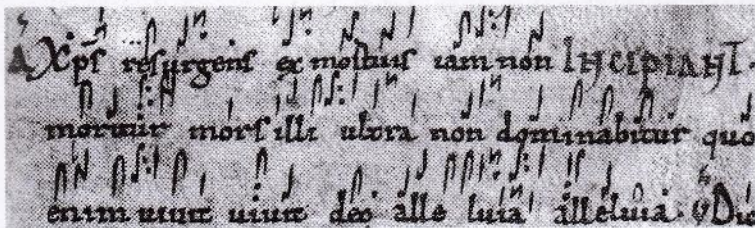 A Xps resurgens ex mortuis iam non INCIPIANT.
moritur mors illi ultra non dominabitur quo
enim uiuit uiuit deo alle luia alleluia. V Di